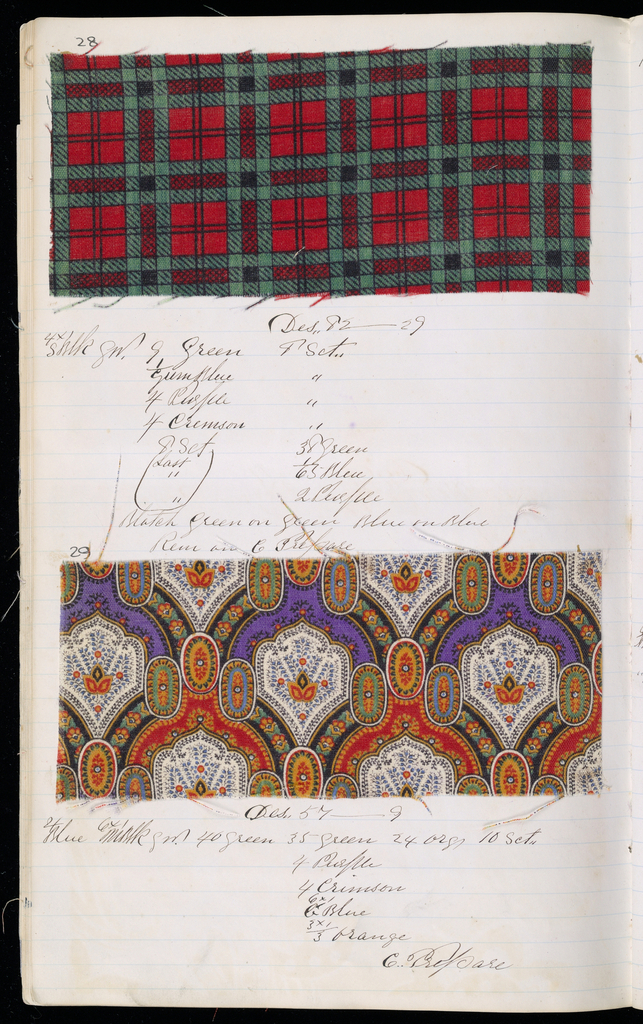 28
Des. 82 — 29
Blk gr. 9 Green 8 Set "
Gum Blue "
4 Purple "
4 Crimson "
8 Set 38 Green
Last Blue
" 2 Purple
Blotch Green on Green Blue on Blue
Rem on C Prepare
29
Des. 57 — 9
Blue Blk gr. 40 green 35 green 24 org 10 Set "
4 Purple
4 Crimson
Blue
Orange
C. Prepare